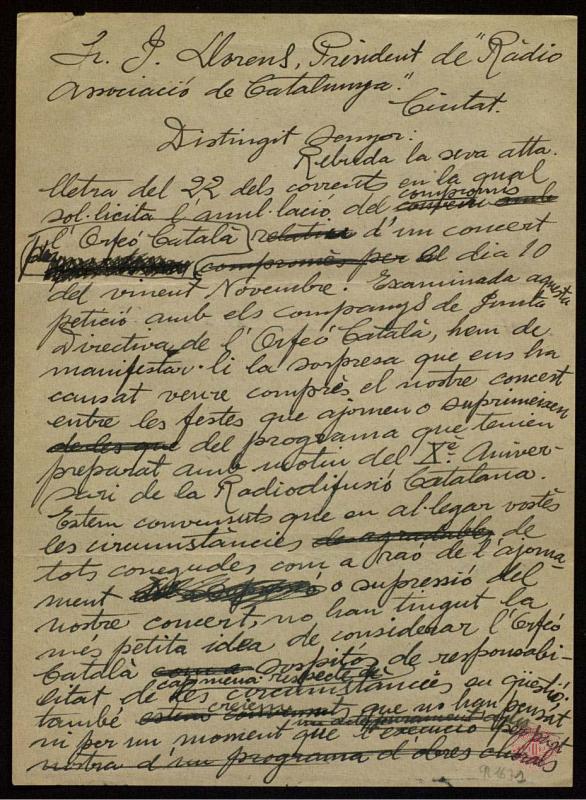 Sr. J. Llorens, President de "Ràdio
Associació de Catalunya."
Ciutat.
Distingit senyor:
Rebuda la seva atta.
lletra del 22 dels corrents en la qual
sol·licita l'anul·lació del compromís
l'Orfeó Català d'un concert
compromès per el dia 10
del vinent Novembre. Examinada aquesta
petició amb els companys de Junta
Directiva de l'Orfeó Català, hem de
manifestar-li la sorpresa que ens ha
causat veure comprès el nostre concert
entre les festes que ajornen o suprimeixen
de les que del programa que tenien
preparat amb motiu del Xè. Aniver-
sari de la Radiodifusió Catalana.
Estem convençuts que en al·legar vostès
les circumstàncies de
tots conegudes com a raó de l'ajorna-
ment o supressió del
nostre concert, no han tingut la
més petita idea de considerar l'Orfeó
Català sospitós de responsabi-
cap mena respecte de
litat de les circumstàncies en qüestió;
creiem
també que no han pensat
ni per un moment que l'execució
nostra d'un programa d'obres corals